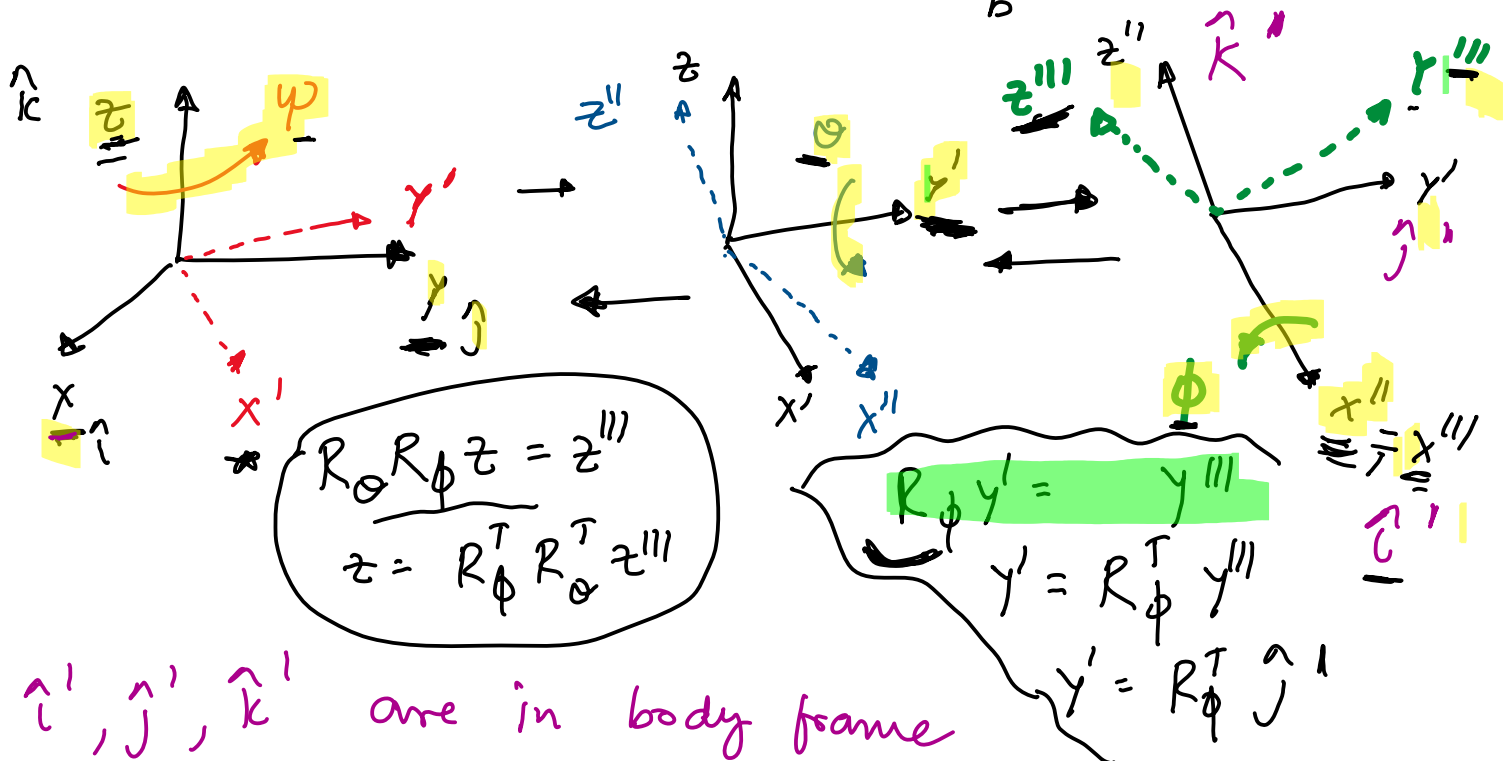 k̂ z ψ
Y'
y ĵ
x î
x'
z z''
θ
y'
x' x''
b
z'' k̂''
z''' Y'''
y'
ĵ''
ϕ
x'' = x'''
î'
R_θ R_ϕ z = z'''
z = R_ϕ^T R_θ^T z'''
R_ϕ y' = y'''
y' = R_ϕ^T y'''
y' = R_ϕ^T ĵ'
î', ĵ', k̂' are in body frame